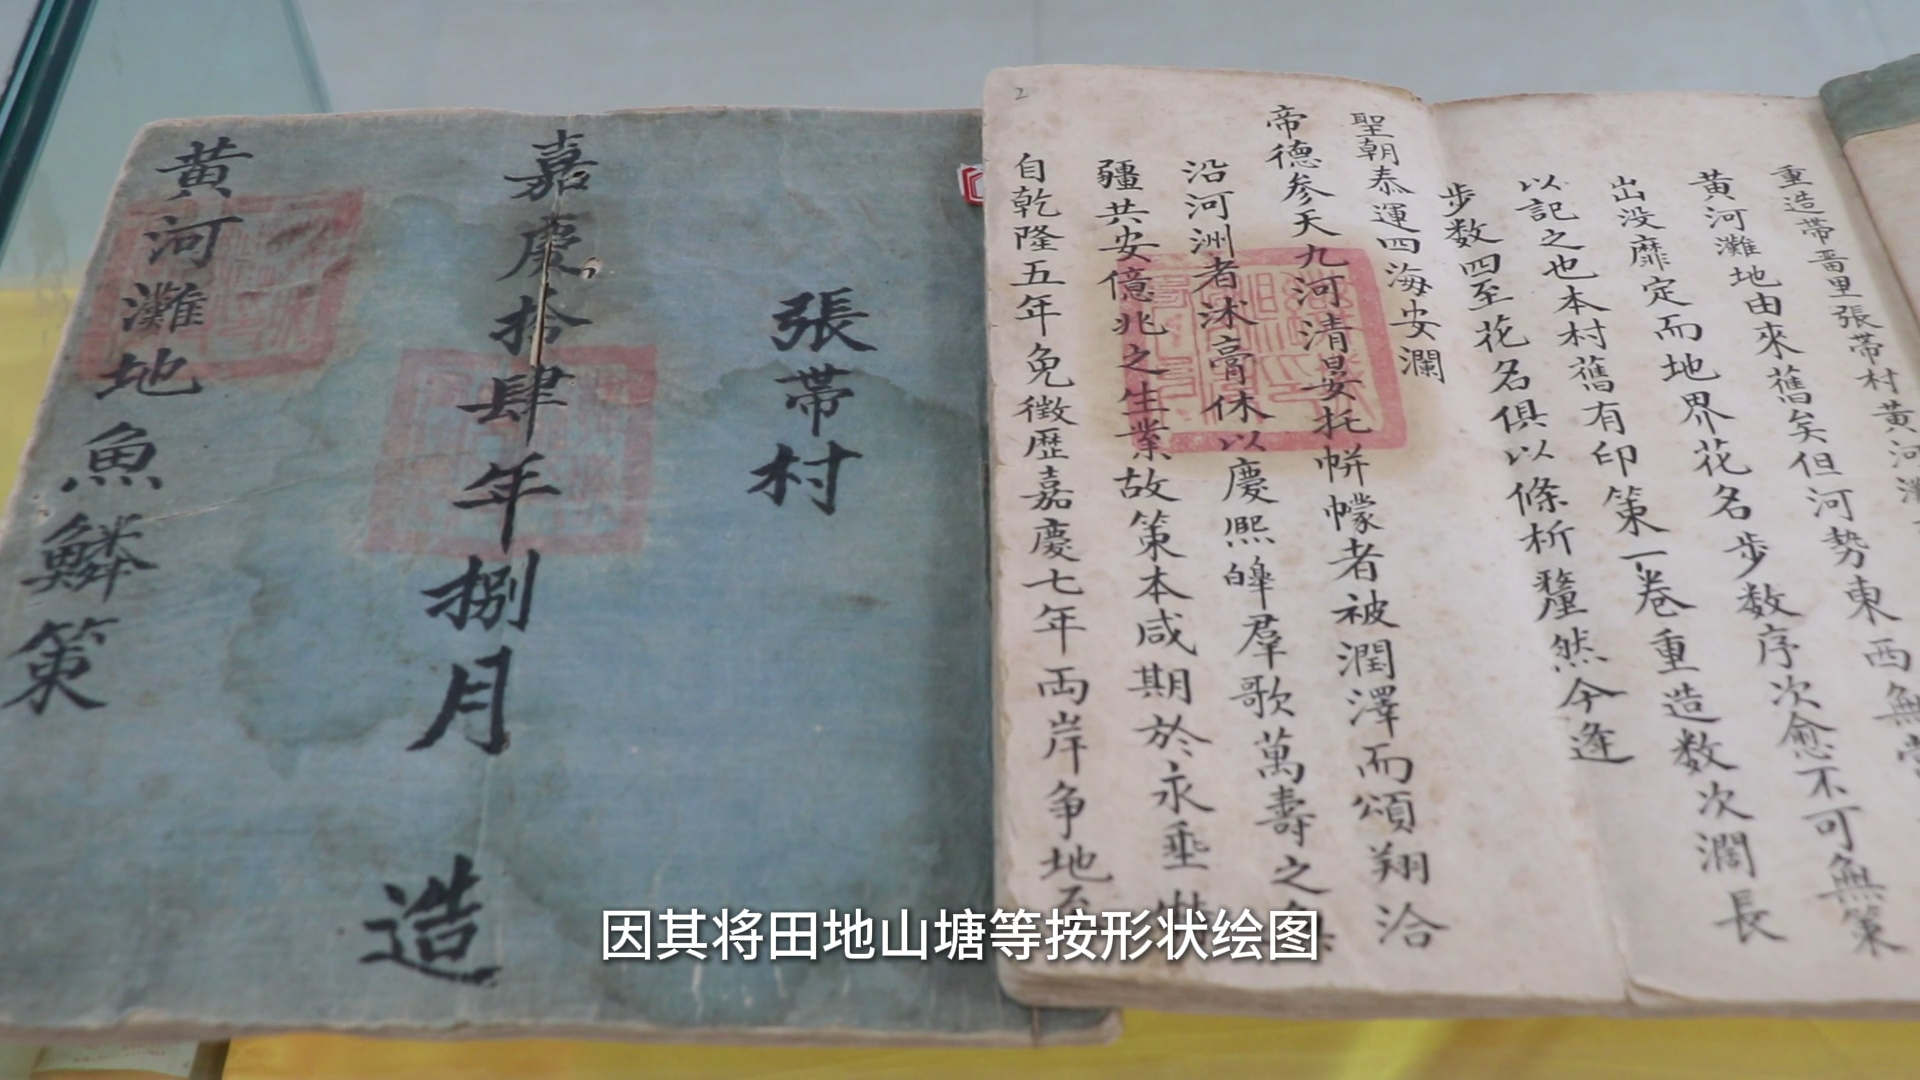 張帶村
嘉慶拾肆年捌月 造
黃河灘地魚鱗策
重造帶畨里張帶村黃河灘
黃河灘地由來舊矣但河勢東西無常
出没靡定而地界花名步数序次愈不可無策
以記之也本村舊有印策一卷重造数次濶長
步数四至花名俱以條析釐然今逢
聖朝泰運四海安瀾
帝德參天九河清晏托帡幪者被潤澤而頌翔洽
沿河洲者沐膏休以慶熙皞羣歌萬壽之
疆共安億兆之生業故策本咸期於永垂
自乾隆五年免徵歷嘉慶七年両岸争地至
2
因其将田地山塘等按形状绘图